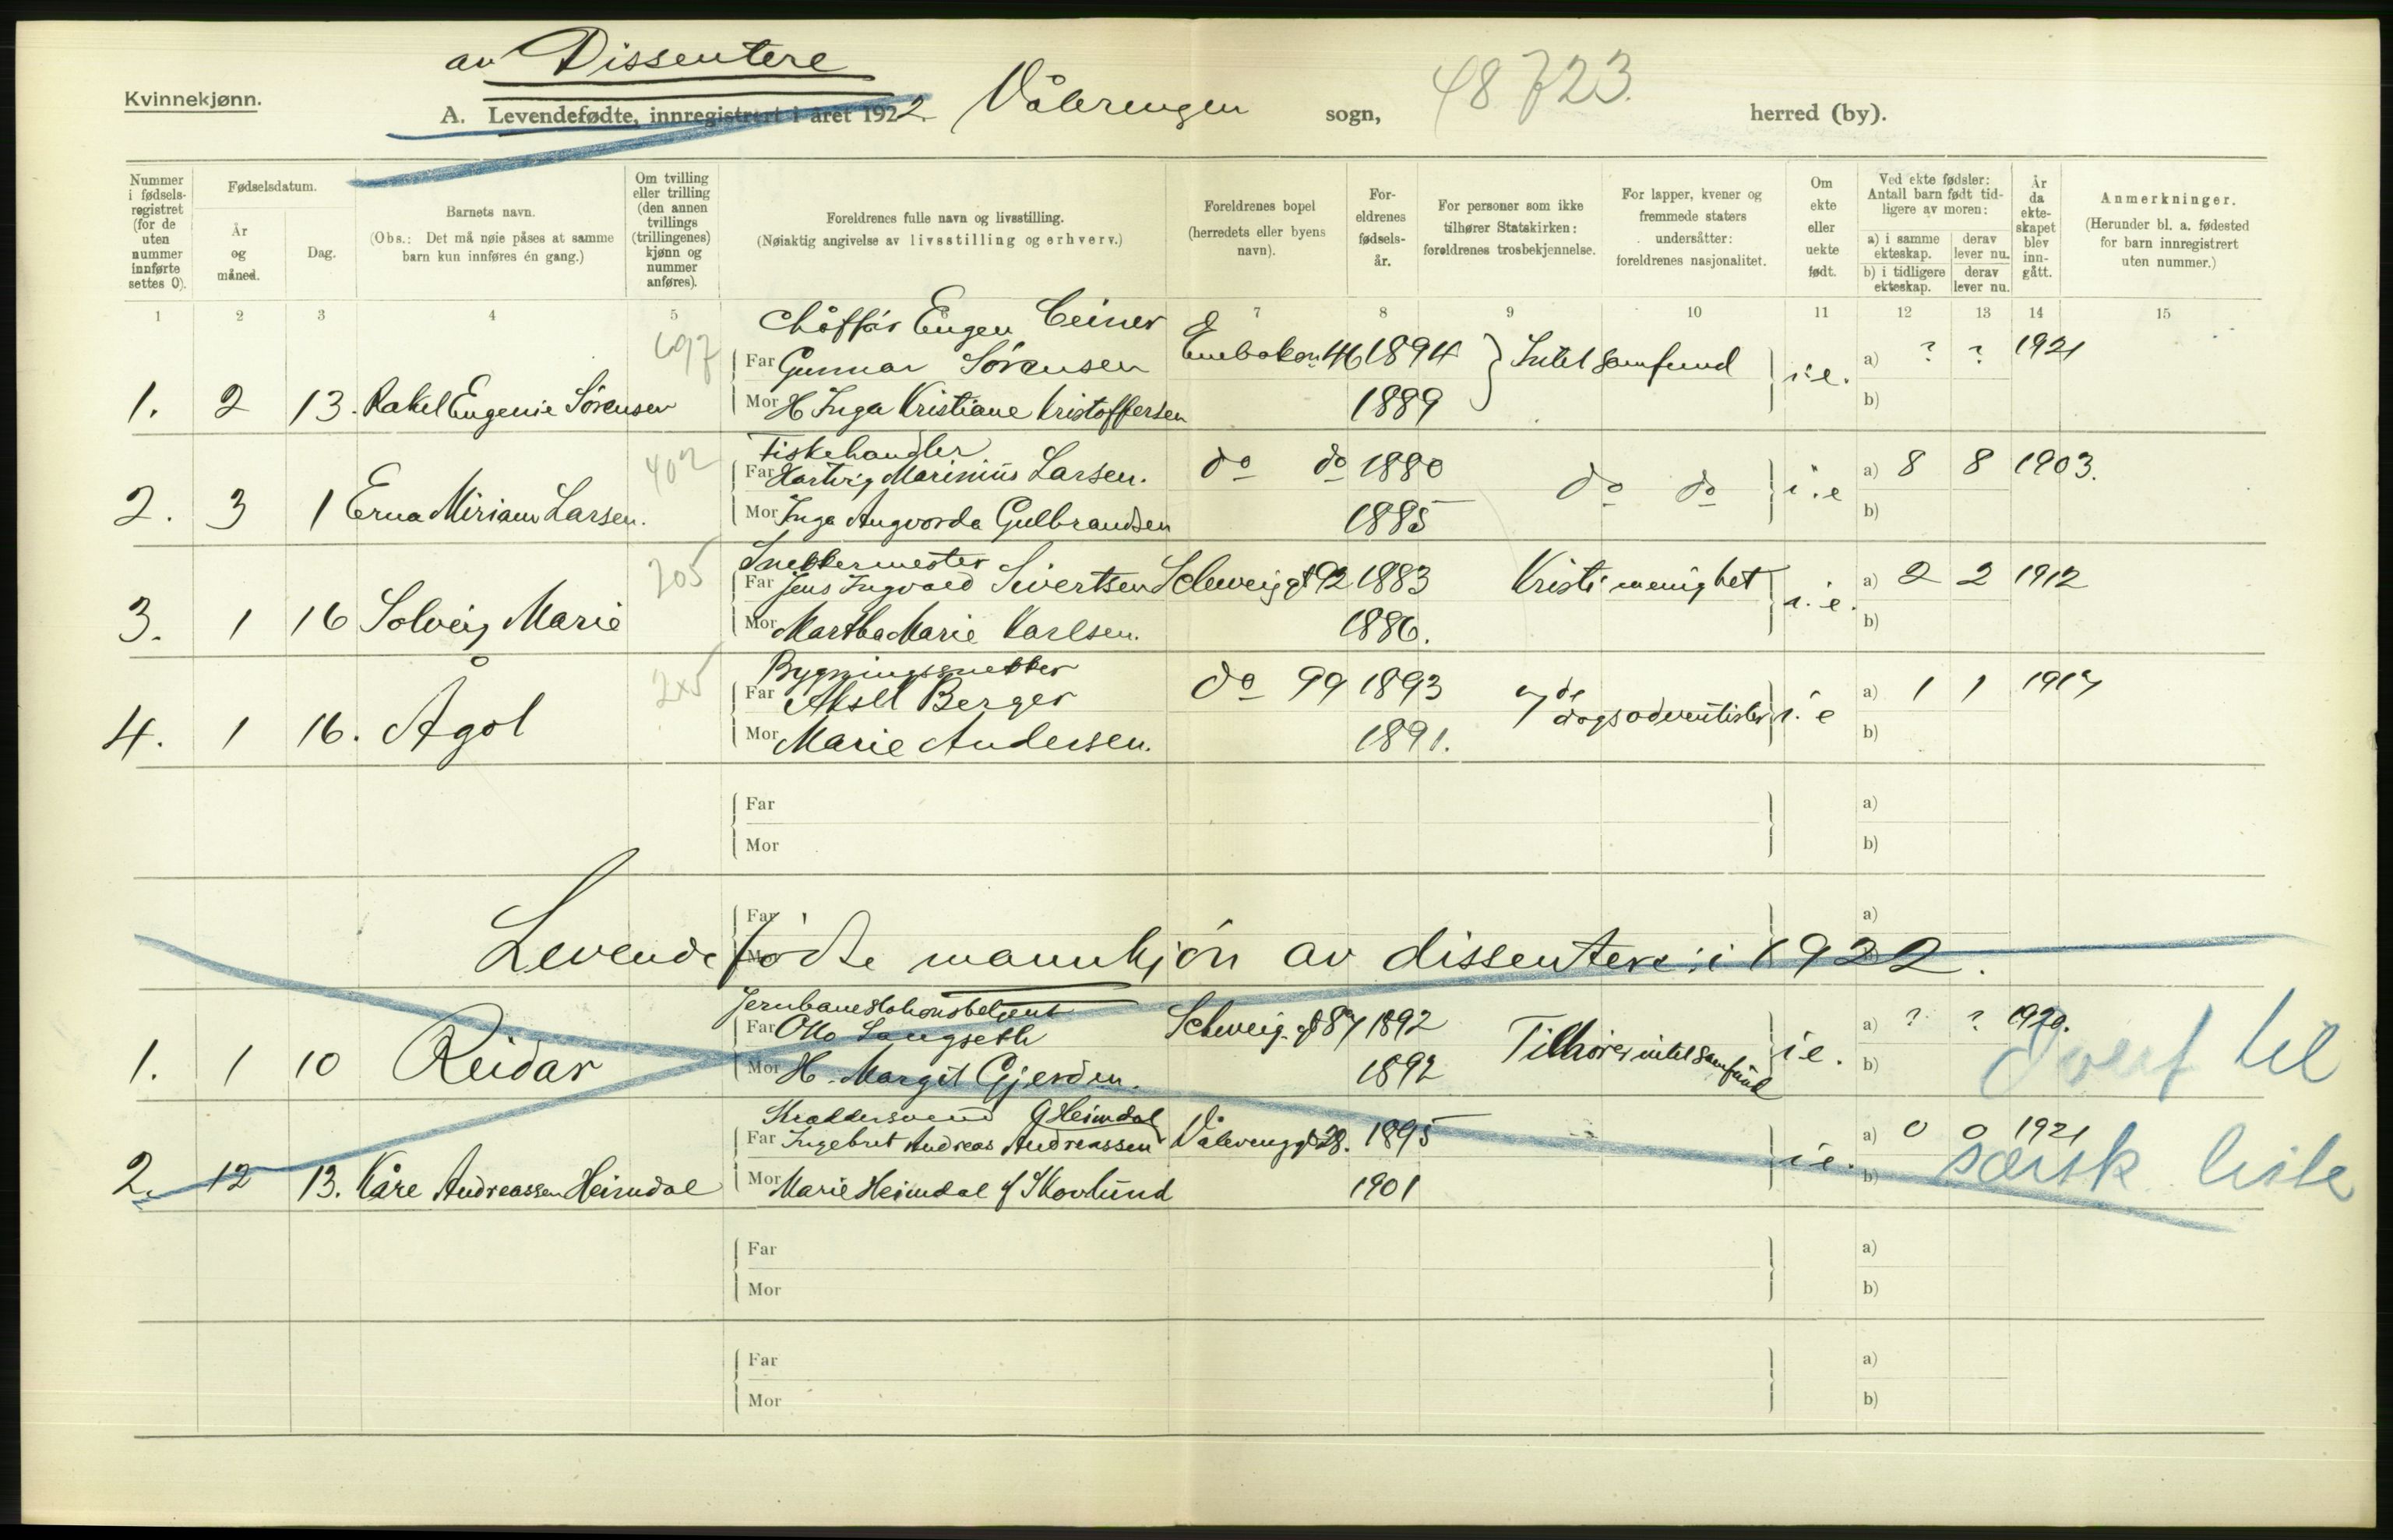 av Dissentere
Kvinnekjønn.
A. Levendefødte, innregistrert i året 1922. Vålerengen sogn, 48723. herred (by).
Nummer i fødsels-registret (for de uten nummer innførte settes 0).
Fødselsdatum.
År og måned.
Dag.
Barnets navn.
(Obs.: Det må nøie påses at samme barn kun innføres én gang.)
Om tvilling eller trilling (den annen tvillings (trillingenes) kjønn og nummer anføres).
Foreldrenes fulle navn og livsstilling.
(Nøiaktig angivelse av livsstilling og erhverv.)
Foreldrenes bopel (herredets eller byens navn).
For-eldrenes fødsels-år.
For personer som ikke tilhører Statskirken: foreldrenes trosbekjennelse.
For lapper, kvener og fremmede staters undersåtter: foreldrenes nasjonalitet.
Om ekte eller uekte født.
Ved ekte fødsler: Antall barn født tid-ligere av moren:
a) i samme ekteskap.
derav lever nu.
b) i tidligere ekteskap.
derav lever nu.
År da ekte-skapet blev inn-gått.
Anmerkninger.
(Herunder bl. a. fødested for barn innregistrert uten nummer.)
1 2 3 4 5 7 8 9 10 11 12 13 14 15
Chåffør Eugen Ceiner
Far Gunnar Sørensen Enebakkv 46 1894 Intet samfund a) ? ? 1921
1. 2 13. Rakel Eugenie Sørensen Mor H Inga Kristiane Kristoffersen 1889 i.e. b)
402
Fiskehandler
Far Hartvig Marinius Larsen. do do 1880 do do a) 8 8 1903.
2. 3 1 Erna Miriam Larsen. Mor Inga Angvorda Gulbrandsen 1885 i.e b)
205
Snekkermester
Far Jens Ingvald Sivertsen Schweiggt 92 1883 Kristi menighet a) 2 2 1912
3. 1 16 Solveig Marie Mor Martha Marie Karlsen. 1886. i.e. b)
Bygningssnekker
Far Aksel Berger do 99 1893 7de dags adventister a) 1 1 1917
4. 1 16. Ågot Mor Marie Andersen. 1891. i.e b)
Far a)
Mor b)
Far a)
Levendefødte mannkjøn av dissentere i 1922.
Mor
Jernbanestationsbetjent
Far Otto Langseth Schweig.gt 87 1892 Tilhører intet samfund a) ? ? 1920.
1. 1 10 Reidar Mor H. Margit Gjerden. 1892 i.e. b)
Overf til
Skræddersvend G Heimdal
Far Ingebret Andreas Andreassen Vålerenggt 28. 1895 a) 0 0 1921
2. 12 13. Kåre Andreassen Heimdal Mor Marie Heimdal f Skovlund 1901 i.e. b)
særsk. liste
Far a)
Mor b)
Far a)
Mor b)